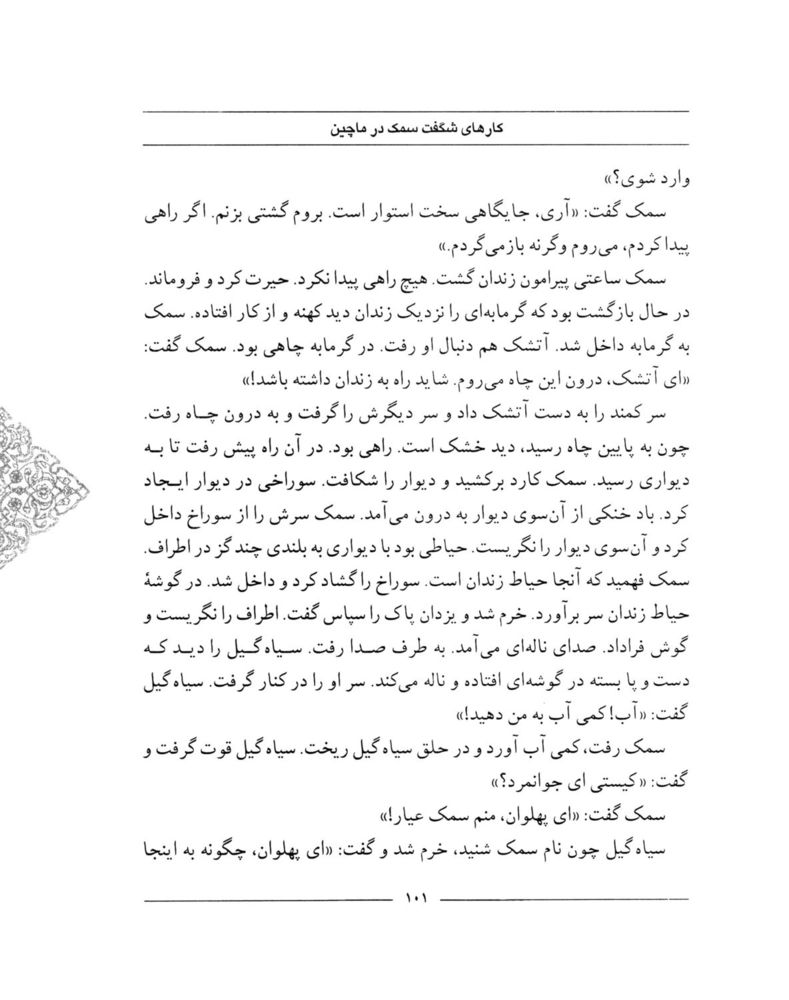 کارهای شگفت سمک در ماچین
وارد شوی؟»
سمک گفت: «آری، جایگاهی سخت استوار است. بروم گشتی بزنم. اگر راهی
پیدا کردم، می‌روم وگرنه بازمی‌گردم.»
سمک ساعتی پیرامون زندان گشت. هیچ راهی پیدا نکرد. حیرت کرد و فروماند.
در حال بازگشت بود که گرمابه‌ای را نزدیک زندان دید کهنه و از کار افتاده. سمک
به گرمابه داخل شد. آتشک هم دنبال او رفت. در گرمابه چاهی بود. سمک گفت:
«ای آتشک، درون این چاه می‌روم. شاید راه به زندان داشته باشد!»
سر کمند را به دست آتشک داد و سر دیگرش را گرفت و به درون چاه رفت.
چون به پایین چاه رسید، دید خشک است. راهی بود. در آن راه پیش رفت تا به
دیواری رسید. سمک کارد برکشید و دیوار را شکافت. سوراخی در دیوار ایجاد
کرد. باد خنکی از آن‌سوی دیوار به درون می‌آمد. سمک سرش را از سوراخ داخل
کرد و آن‌سوی دیوار را نگریست. حیاطی بود با دیواری به بلندی چند گز در اطراف.
سمک فهمید که آنجا حیاط زندان است. سوراخ را گشاد کرد و داخل شد. در گوشهٔ
حیاط زندان سر برآورد. خرم شد و یزدان پاک را سپاس گفت. اطراف را نگریست و
گوش فراداد. صدای ناله‌ای می‌آمد. به طرف صدا رفت. سیاه‌گیل را دید که
دست و پا بسته در گوشه‌ای افتاده و ناله می‌کند. سر او را در کنار گرفت. سیاه‌گیل
گفت: «آب! کمی آب به من دهید!»
سمک رفت، کمی آب آورد و در حلق سیاه‌گیل ریخت. سیاه‌گیل قوت گرفت و
گفت: «کیستی ای جوانمرد؟»
سمک گفت: «ای پهلوان، منم سمک عیار!»
سیاه‌گیل چون نام سمک شنید، خرم شد و گفت: «ای پهلوان، چگونه به اینجا
۱۰۱